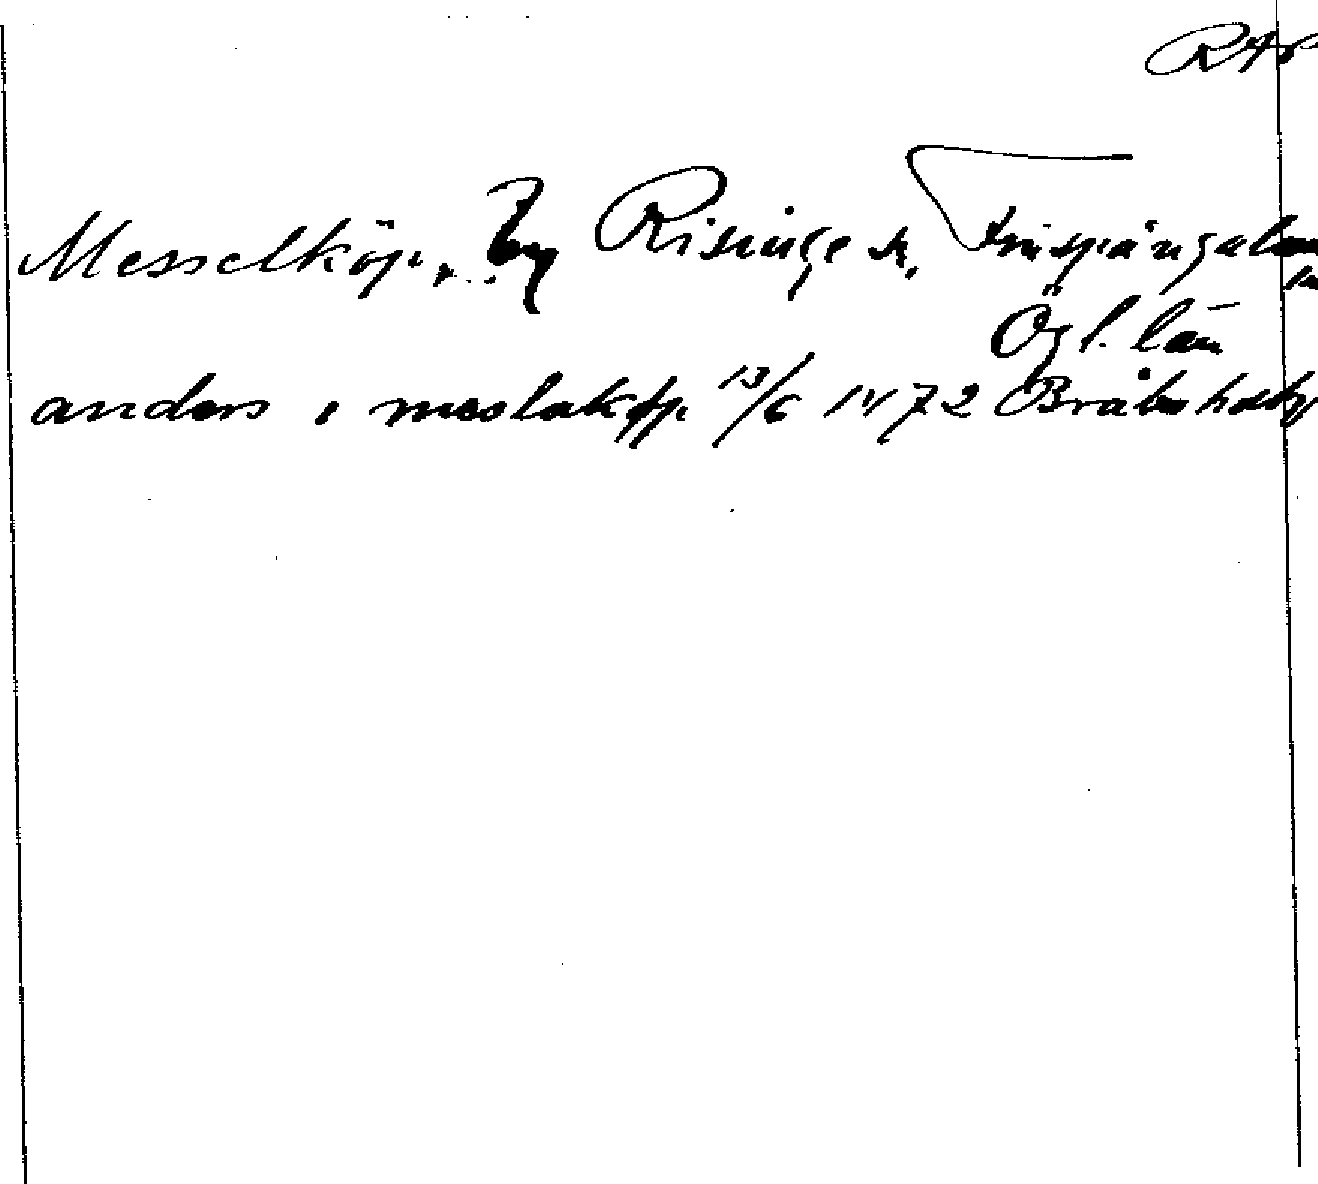 RAp
Messelköp, By Risinge sn, Finspångalens
län
Ögl. län
anders i meslaköp 13/6 1472 Bråbohäll